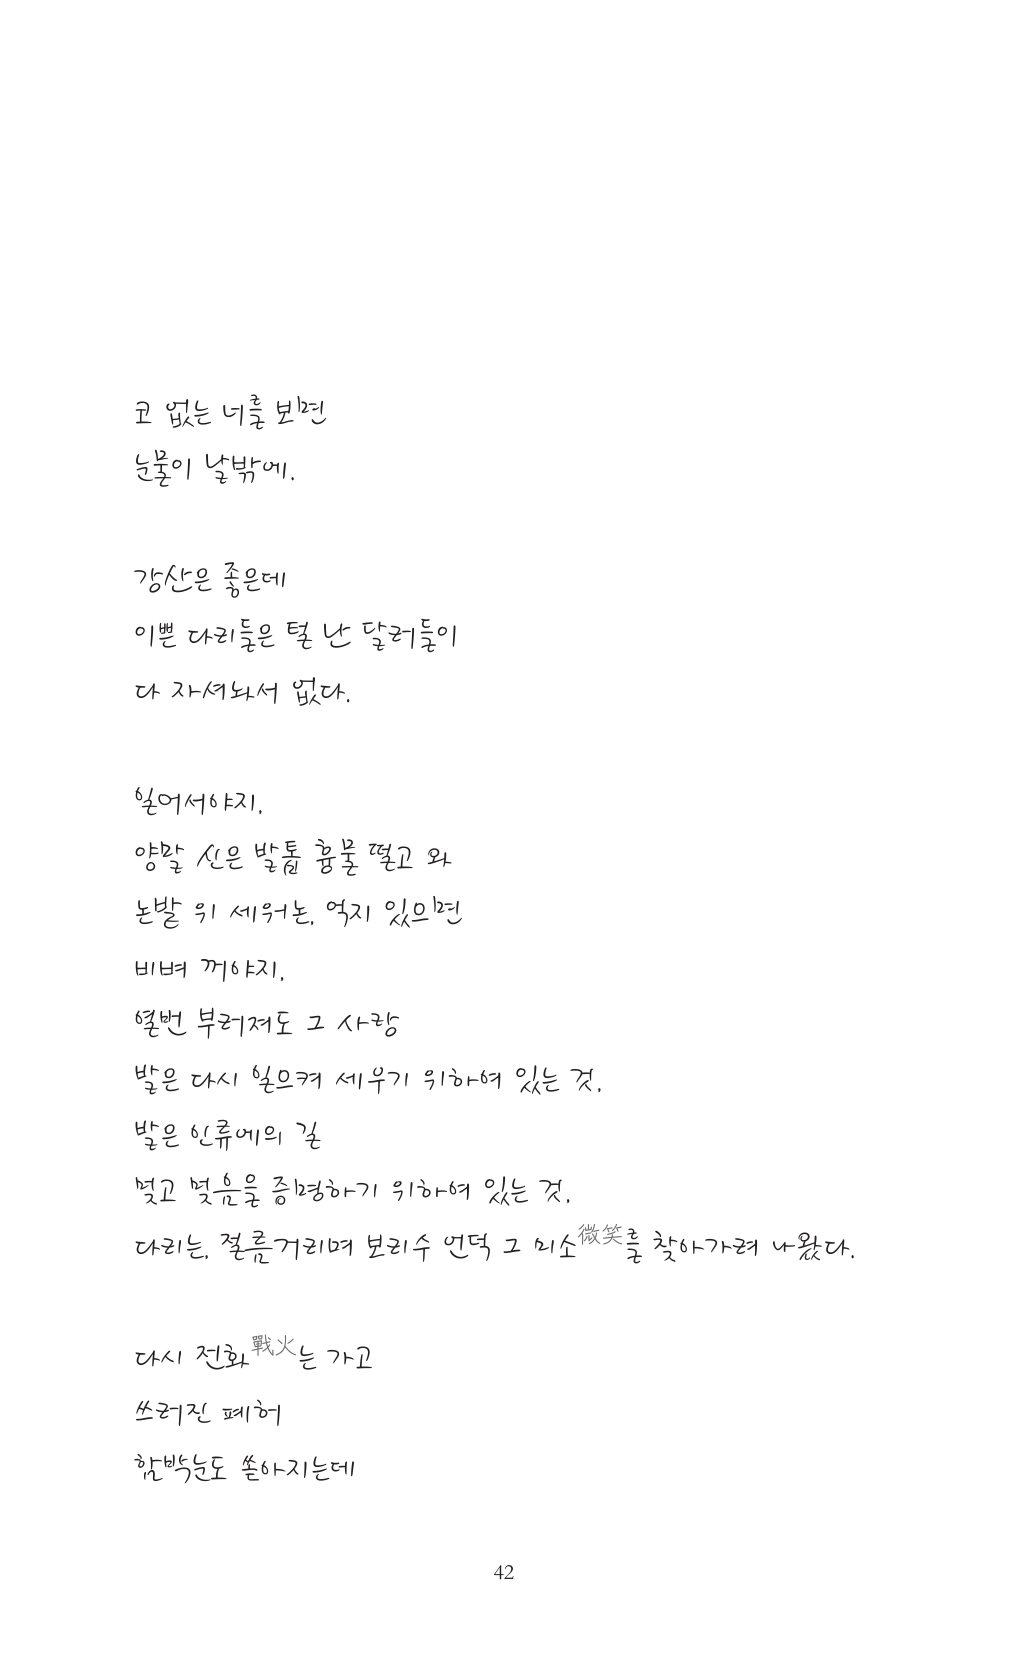 코 없는 너를 보면
눈물이 날밖에.
강산은 좋은데
이쁜 다리들은 털 난 달러들이
다 자셔놔서 없다.
일어서야지.
양말 신은 발톱 흉물 떨고 와
논밭 위 세워논, 억지 있으면
비벼 꺼야지.
열번 부러져도 그 사랑
발은 다시 일으켜 세우기 위하여 있는 것.
발은 인류에의 길
멎고 멎음을 증명하기 위하여 있는 것.
다리는, 절름거리며 보리수 언덕 그 미소微笑를 찾아가려 나왔다.
다시 전화戰火는 가고
쓰러진 폐허
함박눈도 쏟아지는데
42